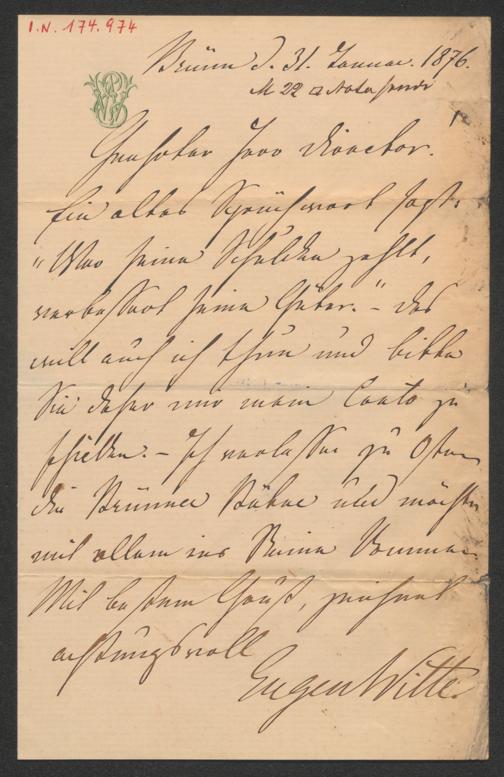 I.N. 174.974
Brünn d. 31. Januar. 1876.
Geehrter Herr Director.
Ein altes Sprüchwort sagt:
"Wer seine Schulden zahlt,
verbessert seine Güter." – Das
will auch ich thun und bitte
Sie daher mir mein Conto zu
schicken. – Ich verlasse zu Ostern
die Brünner Bühne und möchte
mit allem ins Reine kommen.
Mit bestem Gruß, zeichnet
achtungsvoll
Eugen Witte.